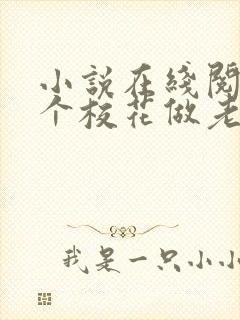 小说在线阅
个校花做老
我是一只小小